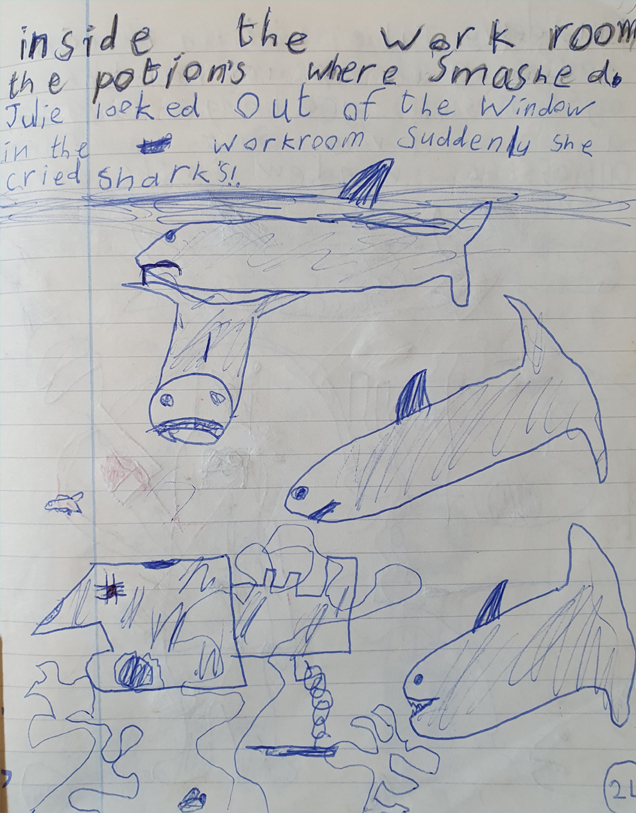 inside the work room
the potion's where Smashed.
Julie looked Out of the Window
in the workroom Suddenly she
cried Shark's!!